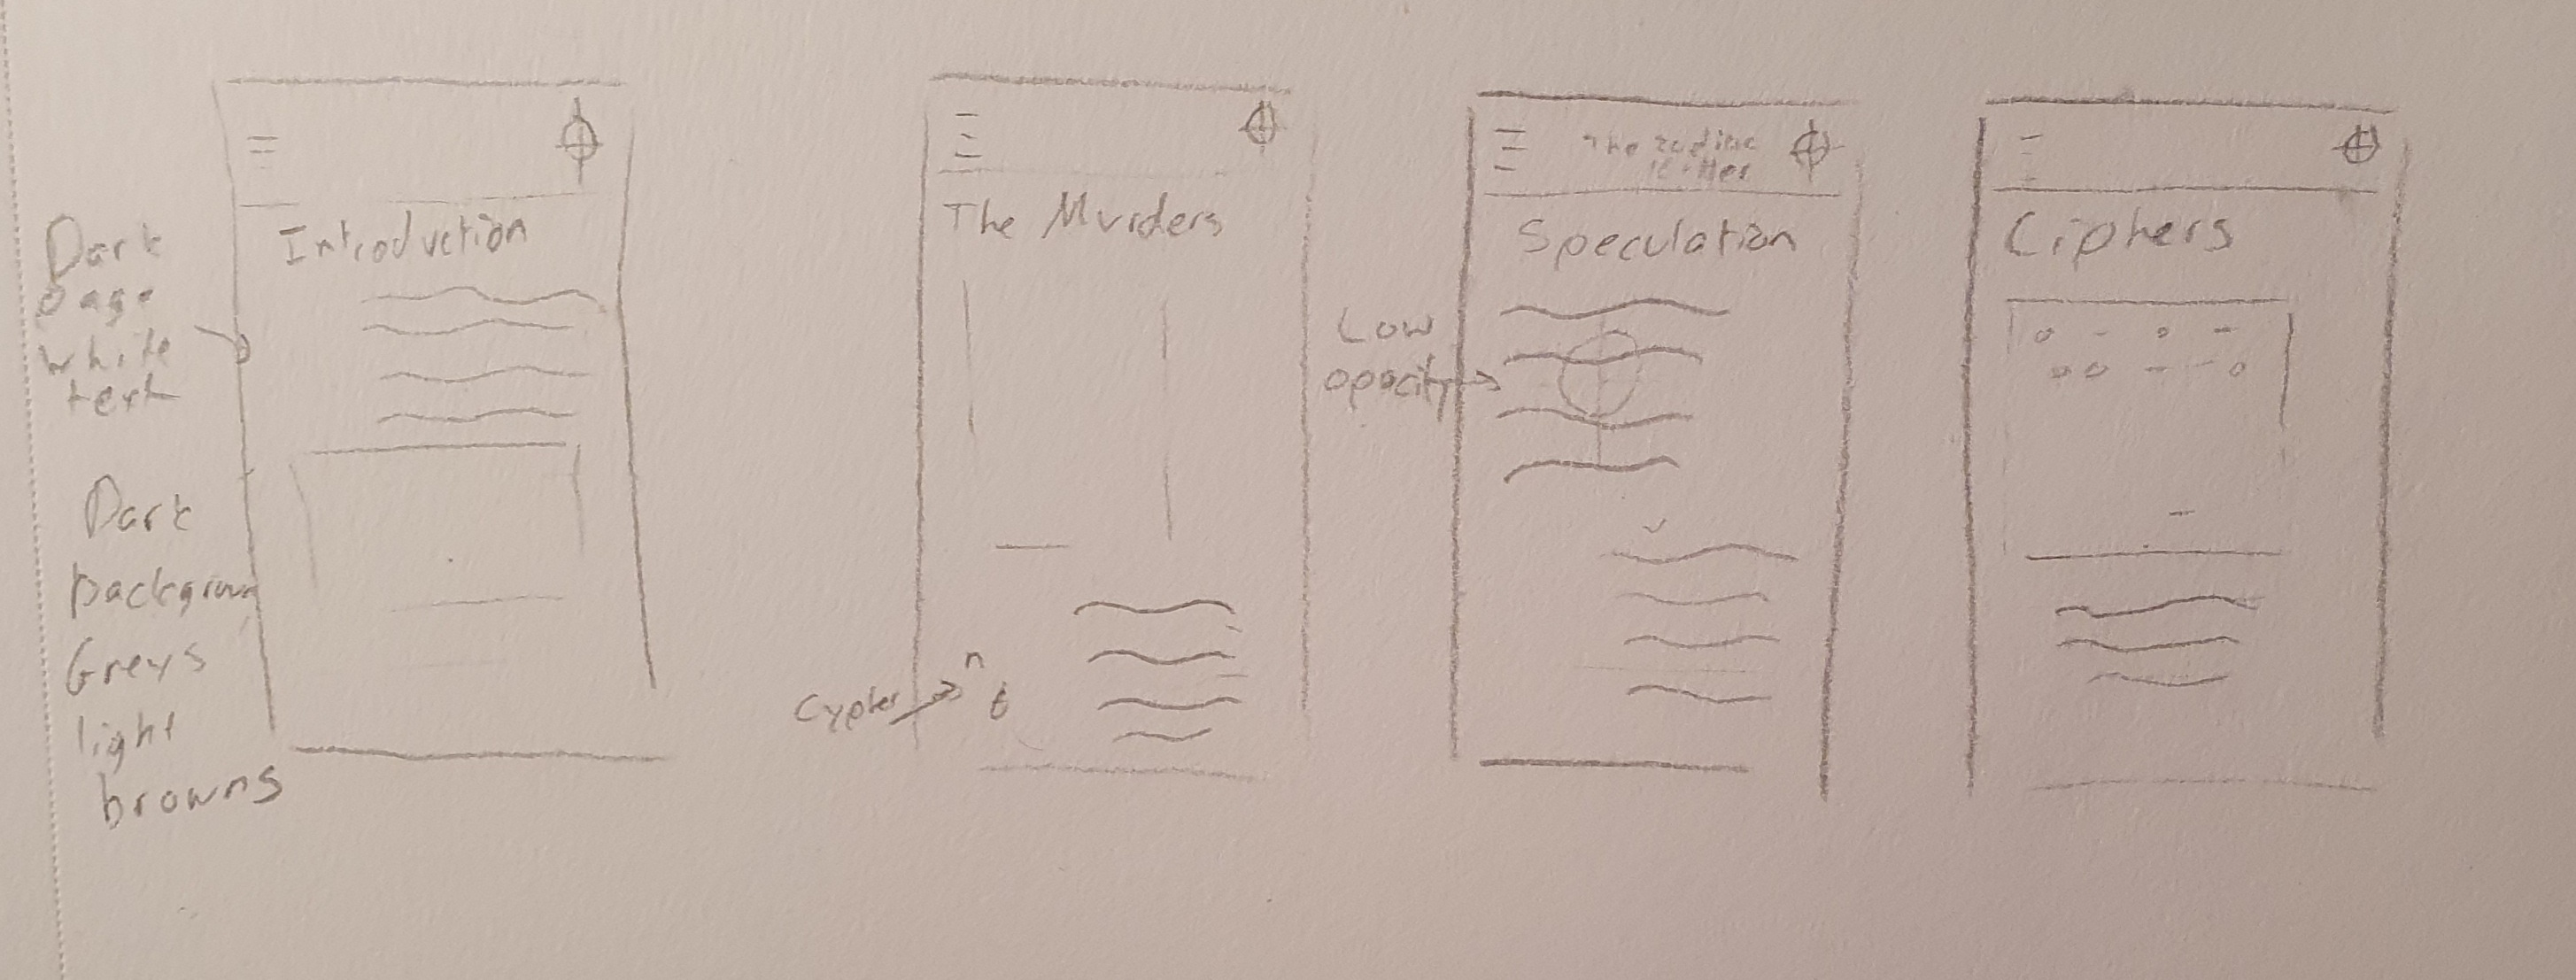 Dark
page
white
text
Dark
backgroun
Greys
light
browns
Introduction
The Murders
Cypher
n
The Zodiac
Killer
Speculation
Low
opacity
Ciphers